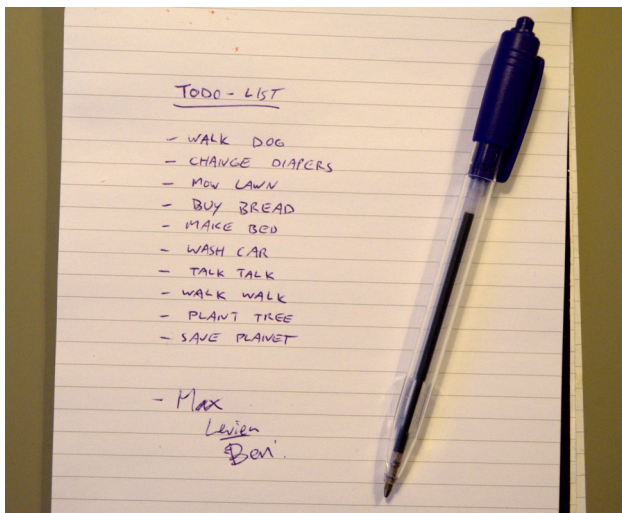 TODO - LIST
- WALK DOG
- CHANGE DIAPERS
- MOW LAWN
- BUY BREAD
- MAKE BED
- WASH CAR
- TALK TALK
- WALK WALK
- PLANT TREE
- SAVE PLANET
- Max
Levien